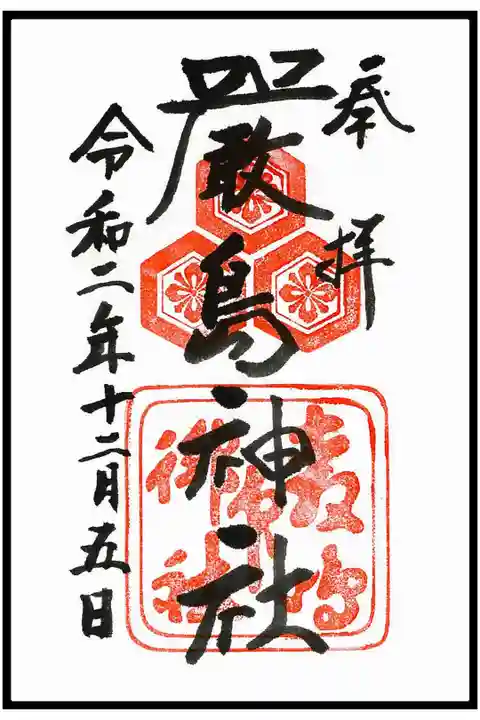 奉拝
嚴島神社
令和二年十二月五日